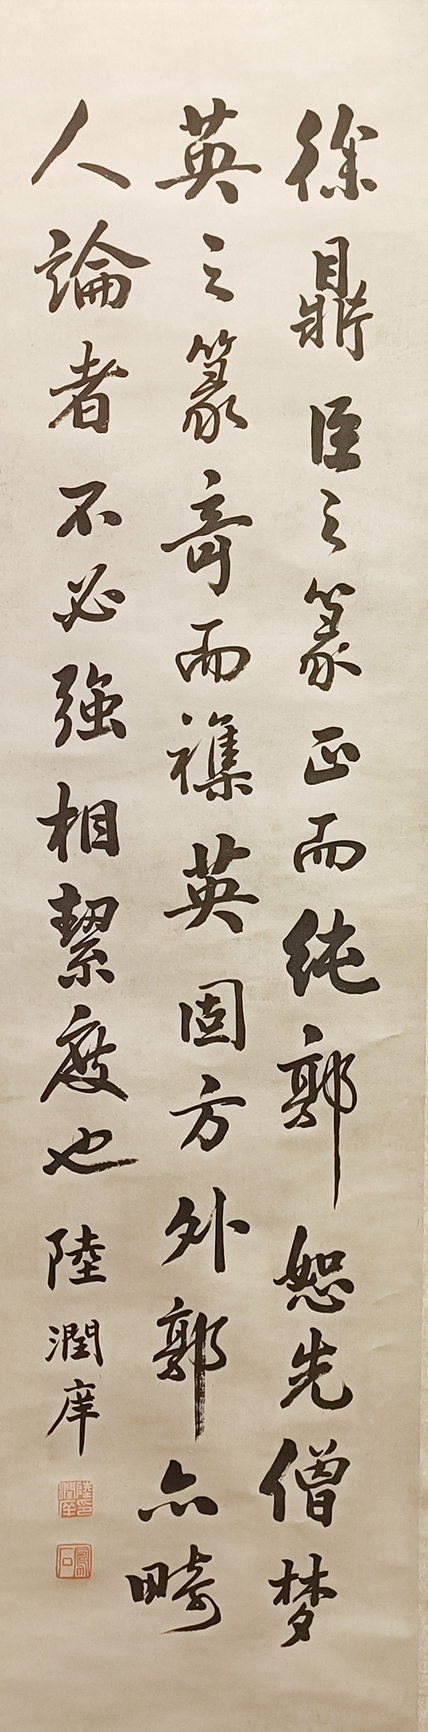 徐鼎臣之篆正而純郭恕先僧梦
英之篆奇而襍英固方外郭亦畸
人論者不必強相絜度也
陸潤庠
陸潤庠印
鳳石